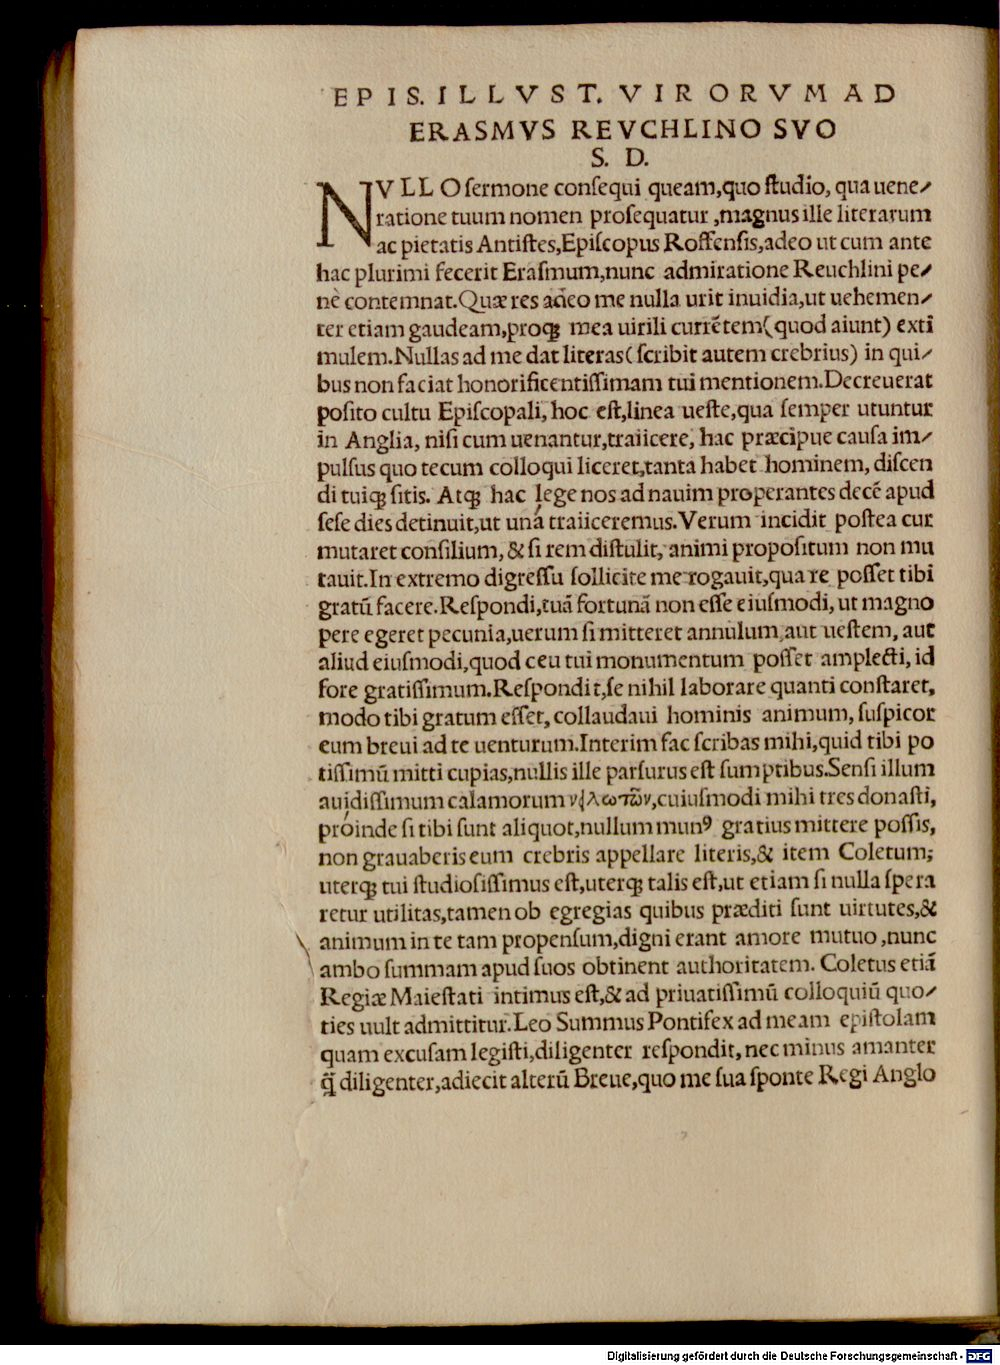 EPIS. ILLVST. VIRORVM AD
ERASMVS REVCHLINO SVO
S. D.
NVLLO sermone consequi queam,quo studio, qua uene-
ratione tuum nomen prosequatur ,magnus ille literarum
ac pietatis Antistes,Episcopus Roffensis,adeo ut cum ante
hac plurimi fecerit Erasmum,nunc admiratione Reuchlini pe-
nè contemnat.Quæ res adeo me nulla urit inuidia,ut uehemen-
ter etiam gaudeam,proqꝫ mea uirili currẽtem(quod aiunt) exti
mulem.Nullas ad me dat literas(scribit autem crebrius) in qui-
bus non faciat honorificentissimam tui mentionem.Decreuerat
posito cultu Episcopali, hoc est,linea ueste,qua semper utuntur
in Anglia, nisi cum uenantur,traiicere, hac præcipue causa im-
pulsus quo tecum colloqui liceret,tanta habet hominem, discen
di tuiqꝫ sitis. Atqꝫ hac lege nos ad nauim properantes decẽ apud
sese dies detinuit,ut uná traiiceremus.Verum incidit postea cur
mutaret consilium, & si rem distulit, animi propositum non mu
tauit.In extremo digressu sollicite me rogauit,qua re posset tibi
gratũ facere.Respondi,tuã fortunã non esse eiusmodi, ut magno
pere egeret pecunia,uerum si mitteret annulum,aut uestem, aut
aliud eiusmodi,quod ceu tui monumentum posset amplecti, id
fore gratissimum.Respondit,se nihil laborare quanti constaret,
modo tibi gratum esset, collaudaui hominis animum, suspicor
eum breui ad te uenturum.Interim fac scribas mihi,quid tibi po
tissimũ mitti cupias,nullis ille parsurus est sumptibus.Sensi illum
auidissimum calamorum νειλωτῶν,cuiusmodi mihi tres donasti,
próinde si tibi sunt aliquot,nullum munꝰ gratius mittere possis,
non grauaberis eum crebris appellare literis,& item Coletum;
uterqꝫ tui studiosissimus est,uterqꝫ talis est,ut etiam si nulla spera
retur utilitas,tamen ob egregias quibus præditi sunt uirtutes,&
animum in te tam propensum,digni erant amore mutuo ,nunc
ambo summam apud suos obtinent authoritatem. Coletus etiã
Regiæ Maiestati intimus est,& ad priuatissimũ colloquiũ quo-
ties uult admittitur.Leo Summus Pontifex ad meam epistolam
quam excusam legisti,diligenter respondit, nec minus amanter
q̃ diligenter,adiecit alterũ Breue,quo me sua sponte Regi Anglo
Digitalisierung gefördert durch die Deutsche Forschungsgemeinschaft - DFG